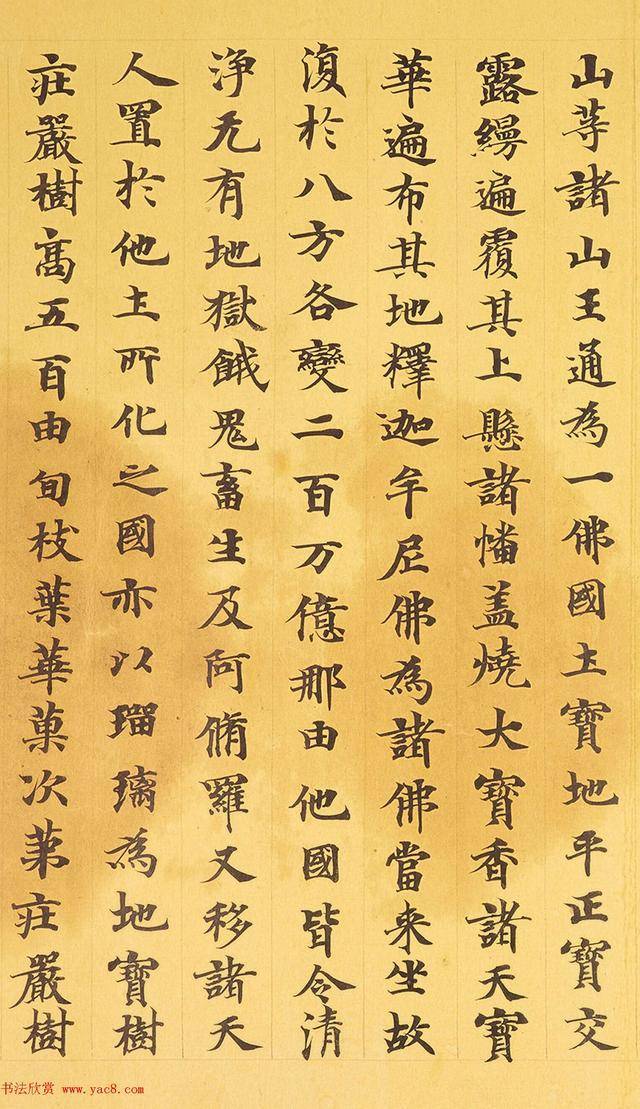 山等諸山王通為一佛國土寶地平正寶交
露縵遍覆其上懸諸幡盖燒大寶香諸天寶
華遍布其地釋迦牟尼佛為諸佛當来坐故
復於八方各變二百万億那由他國皆令清
淨无有地獄餓鬼畜生及阿脩羅又移諸天
人置於他土所化之國亦以瑠璃為地寶樹
莊嚴樹高五百由旬枝葉華菓次第莊嚴樹
书法欣赏 www.yac8.com